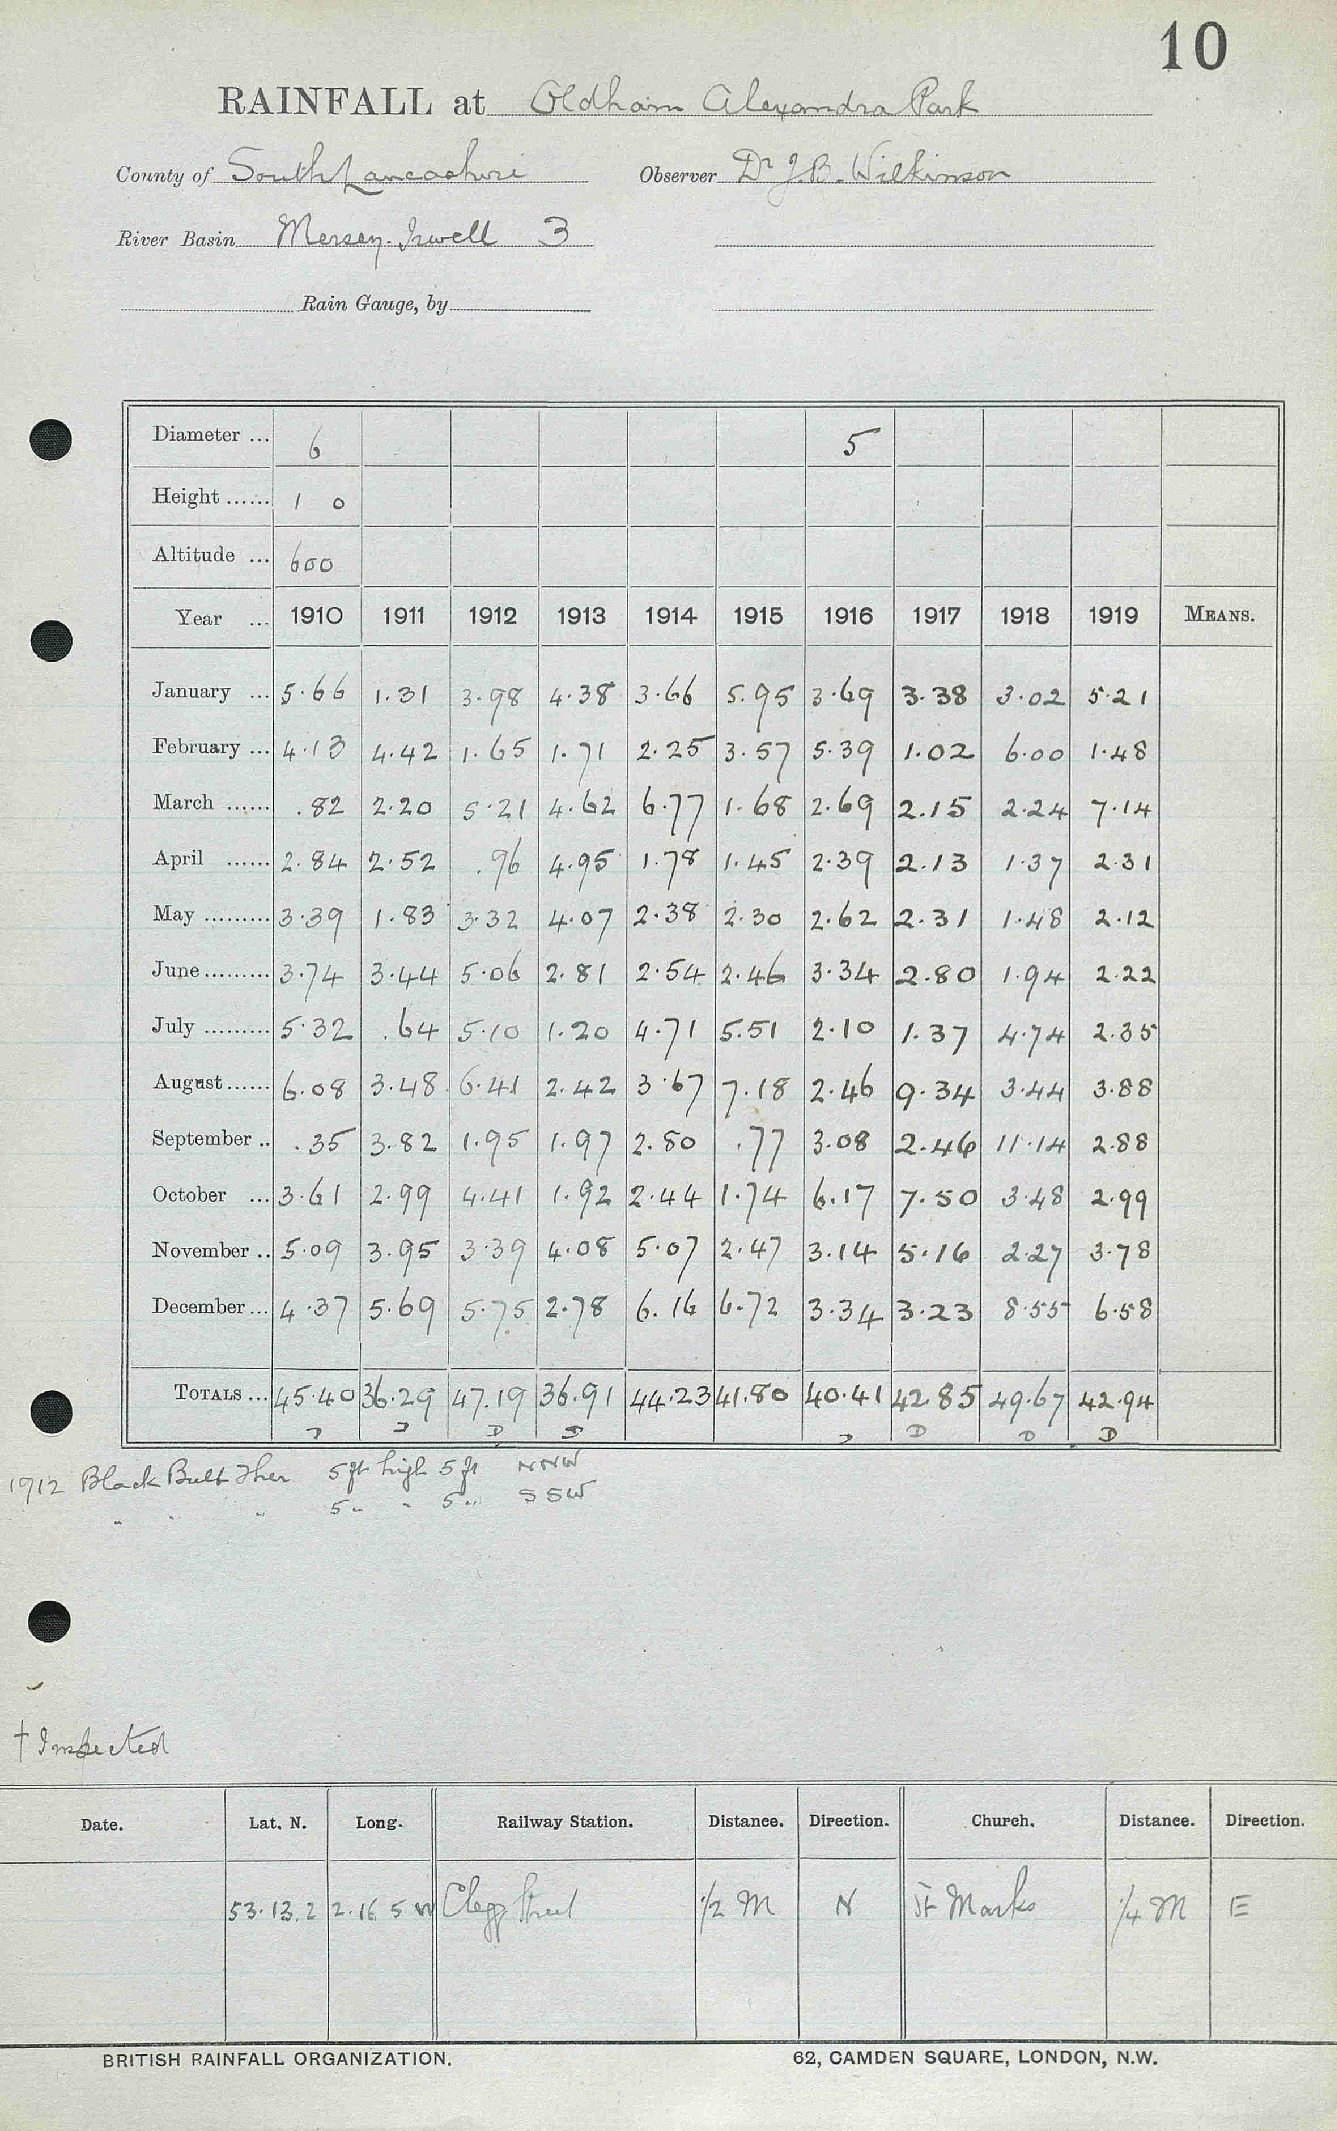 10
RAINFALL at Oldham Alexandra Park
County of South Lancashire Observer Dr J.B. Wilkinson
River Basin Mersey-Irwell 3
Rain Gauge, by
Diameter ... 6 5
Height ...... 1 0
Altitude ... 600
Year ... 1910 1911 1912 1913 1914 1915 1916 1917 1918 1919 MEANS.
January ... 5.66 1.31 3.98 4.38 3.66 5.95 3.69 3.38 3.02 5.21
February ... 4.13 4.42 1.65 1.71 2.25 3.57 5.39 1.02 6.00 1.48
March ...... .82 2.20 5.21 4.62 6.77 1.68 2.69 2.15 2.24 7.14
April ...... 2.84 2.52 .96 4.95 1.78 1.45 2.39 2.13 1.37 2.31
May ......... 3.39 1.83 3.32 4.07 2.38 2.30 2.62 2.31 1.48 2.12
June ......... 3.74 3.44 5.06 2.81 2.54 2.46 3.34 2.80 1.94 2.22
July ......... 5.32 .64 5.10 1.20 4.71 5.51 2.10 1.37 4.74 2.35
August ...... 6.08 3.48 6.41 2.42 3.67 7.18 2.46 9.34 3.44 3.88
September .. .35 3.82 1.95 1.97 2.80 .77 3.08 2.46 11.14 2.88
October ... 3.61 2.99 4.41 1.92 2.44 1.74 6.17 7.50 3.48 2.99
November .. 5.09 3.95 3.39 4.08 5.07 2.47 3.14 5.16 2.27 3.78
December ... 4.37 5.69 5.75 2.78 6.16 6.72 3.34 3.23 8.55 6.58
TOTALS ... 45.40 36.29 47.19 36.91 44.23 41.80 40.41 42.85 49.67 42.94
D D D D D
1912 Black Bulb Ther 5 ft high 5 ft NNW
" " " 5 " " 5 " SSW
† Inspected
Date. Lat. N. Long. Railway Station. Distance. Direction. Church. Distance. Direction.
53.13.2 2.16 5 W Clegg Street 1/2 M N St Marks 1/4 M E
BRITISH RAINFALL ORGANIZATION. 62, CAMDEN SQUARE, LONDON, N.W.